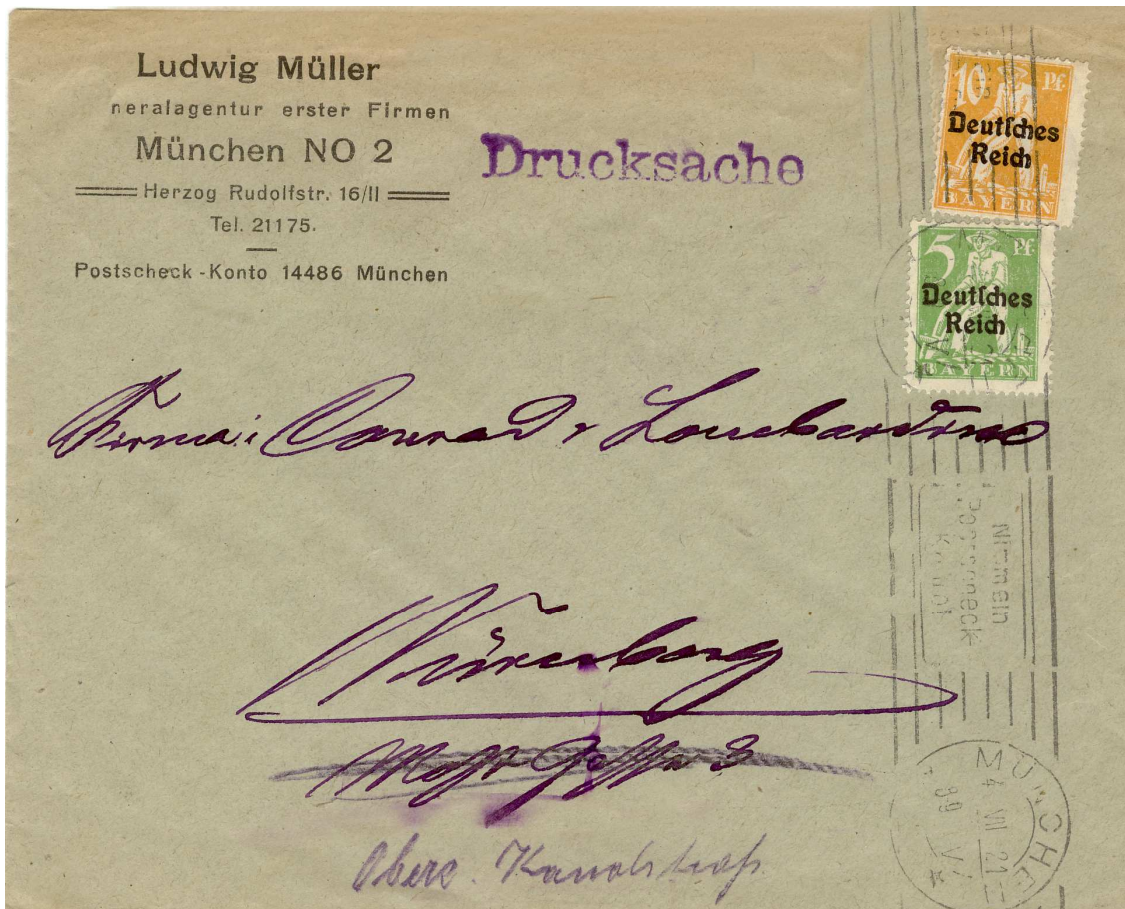 Ludwig Müller
neralagentur erster Firmen
München NO 2
Herzog Rudolfstr. 16/II
Tel. 21175.
Postscheck-Konto 14486 München
Drucksache
10 Pf
Deutſches
Reich
BAYERN
5 Pf
Deutſches
Reich
BAYERN
Firma: Conrad & Lombardino
Nürnberg
Obere Kanalstraße
Nimm ein
MÜNCHE
4 VII 21